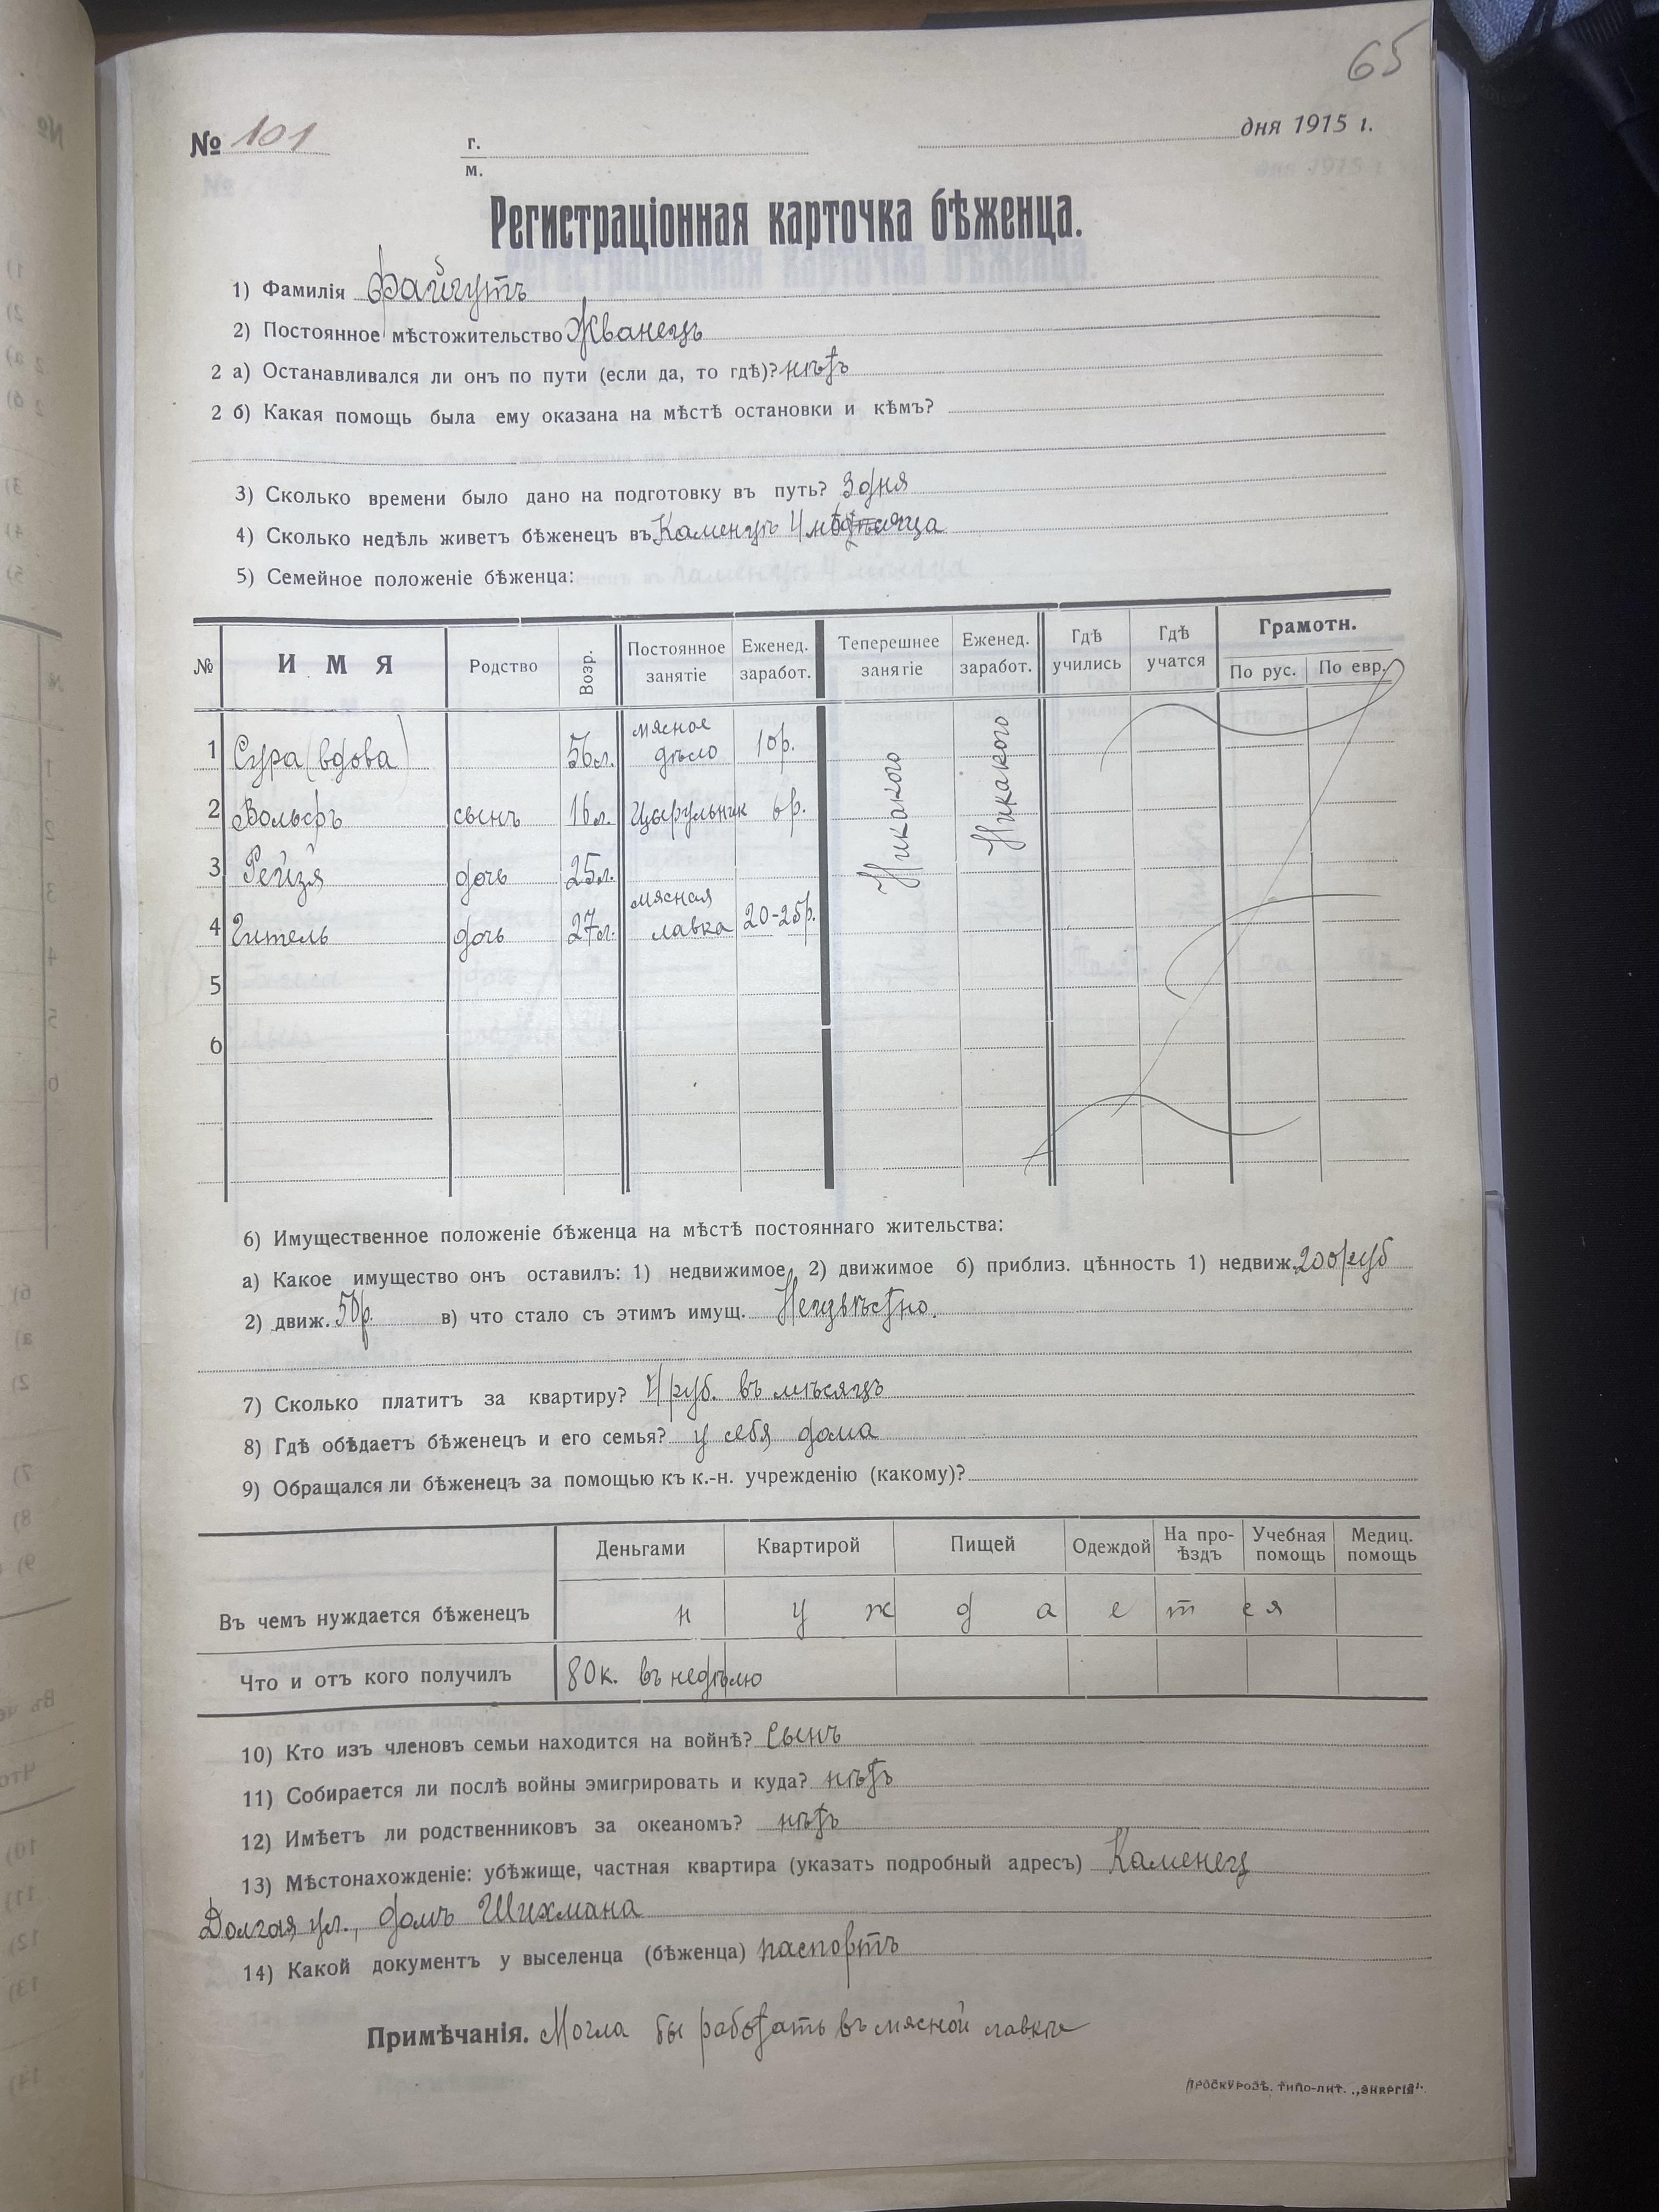 65
№ 101 г. дня 1915 г.
м.
Регистраціонная карточка бѣженца.
1) Фамилія Файгутъ
2) Постоянное мѣстожительство Жванецъ
2 а) Останавливался ли онъ по пути (если да, то гдѣ)? нѣтъ
2 б) Какая помощь была ему оказана на мѣстѣ остановки и кѣмъ?
3) Сколько времени было дано на подготовку въ путь? 3 дня
4) Сколько недѣль живетъ бѣженец въ Каменцѣ 4 мѣсяца
5) Семейное положеніе бѣженца:
№ ИМЯ Родство Возр. Постоянное занятіе Еженед. заработ. Теперешнее занятіе Еженед. заработ. Гдѣ учились Гдѣ учатся Грамотн. По рус. По евр.
1 Сура (вдова) 56 л. мясное дѣло 10 р. Никакого Никакого
2 Вольфъ сынъ 16 л. Цырульник 6 р.
3 Рейзя дочь 25 л.
4 Гитель дочь 27 л. мясная лавка 20-25 р.
5
6
6) Имущественное положеніе бѣженца на мѣстѣ постояннаго жительства:
а) Какое имущество онъ оставилъ: 1) недвижимое 2) движимое б) приблиз. цѣнность 1) недвиж. 200 руб
2) движ. 50 р. в) что стало съ этимъ имущ. Неизвѣстно.
7) Сколько платитъ за квартиру? 4 руб. въ мѣсяцъ
8) Гдѣ обѣдаетъ бѣженецъ и его семья? у себя дома
9) Обращался ли бѣженецъ за помощью къ к.-н. учрежденію (какому)?
Деньгами Квартирой Пищей Одеждой На про-ѣздъ Учебная помощь Медиц. помощь
Въ чемъ нуждается бѣженецъ н у ж д а е т с я
Что и отъ кого получилъ 80 к. въ недѣлю
10) Кто изъ членовъ семьи находится на войнѣ? сынъ
11) Собирается ли послѣ войны эмигрировать и куда? нѣтъ
12) Имѣетъ ли родственниковъ за океаномъ? нѣтъ
13) Мѣстонахожденіе: убѣжище, частная квартира (указать подробный адресъ) Каменец
Долгая ул., домъ Шихмана
14) Какой документъ у выселенца (бѣженца) паспортъ
Примѣчанія. Могла бы работать въ мясной лавкѣ
ПРОСКУРОВЪ. ТИПО-ЛИТ. „ЭНЕРГІЯ".